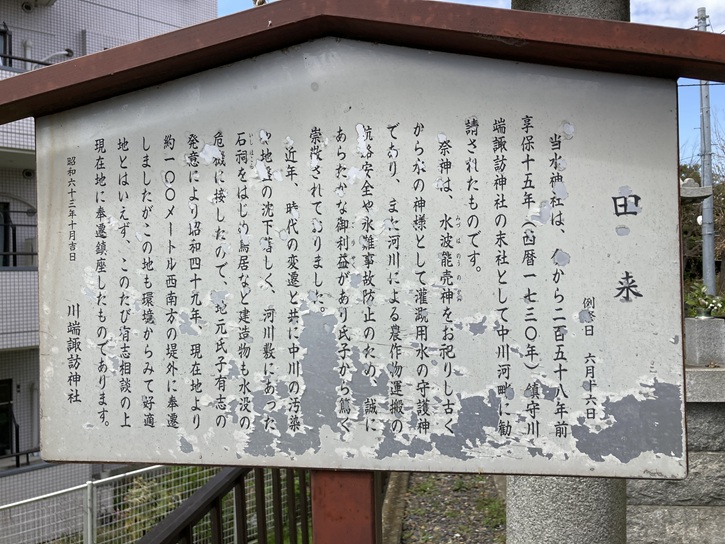 由来
例祭日 六月十六日
当水神社は、今から二百五十八年前
享保十五年(西暦一七三〇年)鎮守川
端諏訪神社の末社として中川河畔に勧
請されたものです。
祭神は、水波能売神をお祀りし古く
みづはのめのかみ
から水の神様として灌漑用水の守護神
であり、また河川による農作物運搬の
航路安全や水難事故防止のため、誠に
あらたかな御利益があり氏子から篤く
崇敬されておりました。
近年、時代の変遷と共に中川の汚染
地盤の沈下著しく、河川敷にあった
石祠をはじめ鳥居など建造物も水没の
いしほこら
危機に接したので、地元氏子有志の
発意により昭和四十九年、現在地より
約一〇〇メートル西南方の堤外に奉遷
しましたがこの地も環境からみて好適
地とはいえず、このたび有志相談の上
現在地に奉遷鎮座したものであります。
昭和六十三年十月吉日
川端諏訪神社